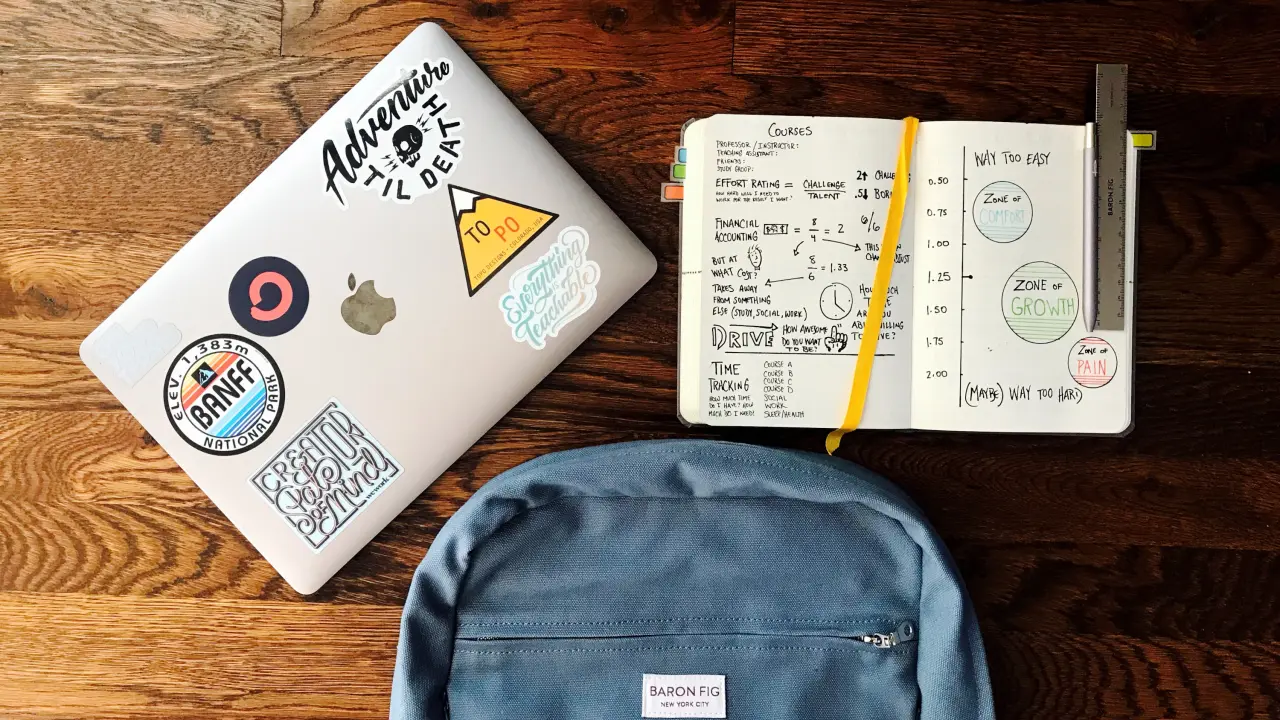 Adventure
'TIL DEATH
TO PO
TOPO DESIGNS - COLORADO, USA
Everything
is
Teachable
ELEV. 1,383m
BANFF
NATIONAL PARK
CREATOR
Sate
OF
Mind
wework
COURSES
PROFESSOR / INSTRUCTOR:
TEACHING ASSISTANT:
FRIENDS:
STUDY GROUP:
EFFORT RATING = CHALLENGE
TALENT
HOW HARD WILL I NEED TO
WORK FOR THE RESULT I WANT?
2↑
.5↓
FINANCIAL
ACCOUNTING
8
4
= 2
6/6
BUT AT
WHAT COST?
8
6
= 1.33
THIS
TAKES AWAY
FROM SOMETHING
ELSE (STUDY, SOCIAL, WORK)
HOW
DRIVE
HOW AWESOME
DO YOU WANT
TO BE?
TIME
TRACKING
HOW MUCH TIME
DO I HAVE? HOW
MUCH DO I NEED?
COURSE A
COURSE B
COURSE C
COURSE D
SOCIAL
WORK
SLEEP/HEALTH
WAY TOO EASY
0.50
0.75
1.00
1.25
1.50
1.75
2.00
ZONE OF
COMFORT
ZONE OF
GROWTH
ZONE OF
PAIN
(MAYBE) WAY TOO HARD
BARON FIG
BARON FIG
NEW YORK CITY